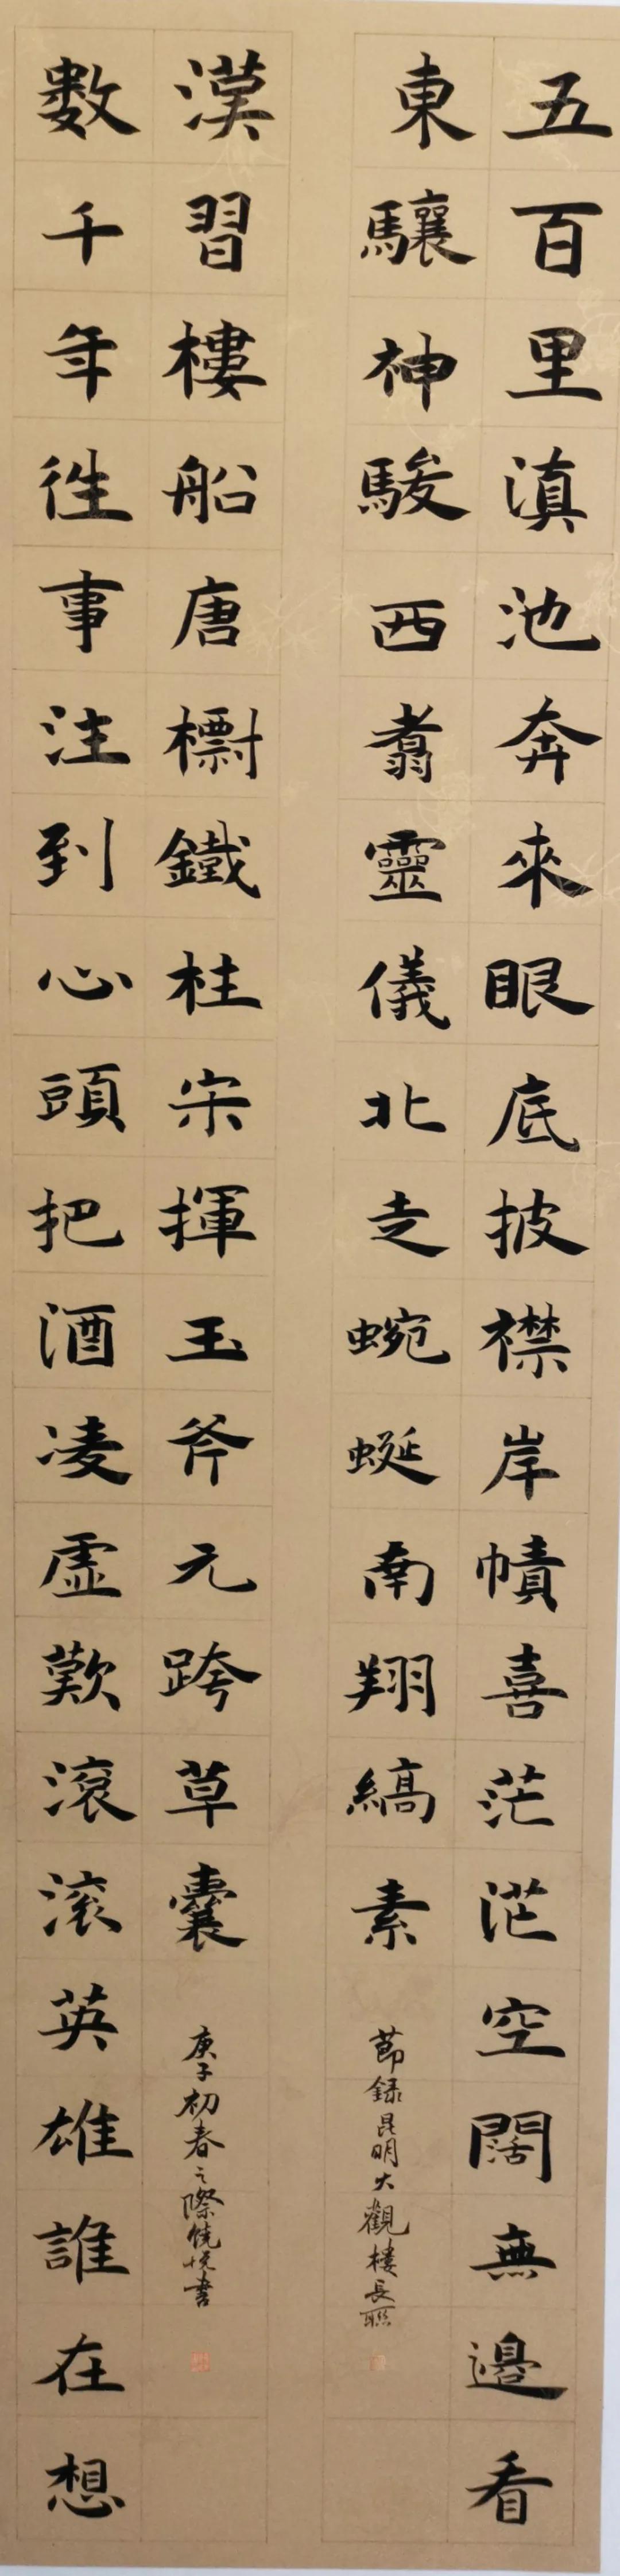 五百里滇池奔來眼底披襟岸幘喜茫茫空闊無邊看
東驤神駿西翥靈儀北走蜿蜒南翔縞素
節録昆明大觀樓長聯
數千年徃事注到心頭把酒凌虛歎滾滾英雄誰在想
漢習樓船唐檦鐵柱宋揮玉斧元跨草囊
庚子初春之際饒悅書